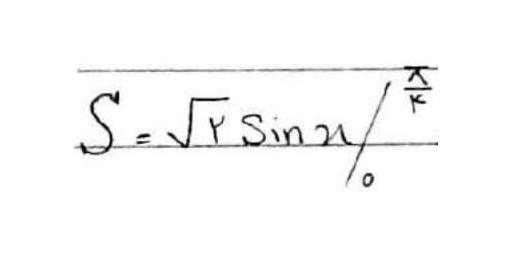 S = √۲ Sin x |₀^(π/۴)